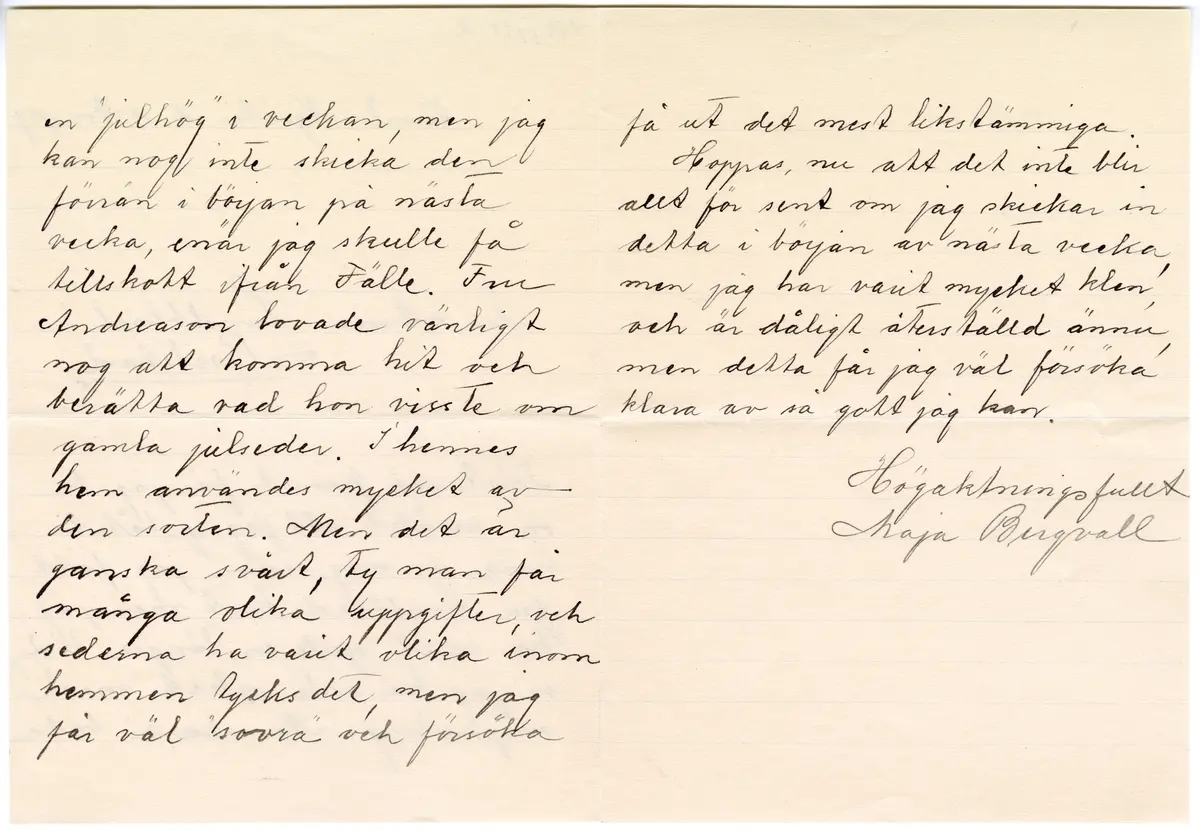 en "julhög" i veckan, men jag
kan nog inte skicka den
förrän i början på nästa
vecka, enär jag skulle få
tillskott ifrån Fälle. Fru
Andreason lovade vänligt
nog att komma hit och
berätta vad hon visste om
gamla julseder. I hennes
hem användes mycket av
den sorten. Men det är
ganska svårt, ty man får
många olika uppgifter, och
sederna ha varit olika inom
hemmen tycks det, men jag
får väl "sovra" och försöka
få ut det mest likstämmiga.
Hoppas, nu att det inte blir
allt för sent om jag skickar in
detta i början av nästa vecka,
men jag har varit mycket klen,
och är dåligt återställd ännu,
men detta får jag väl försöka
klara av så gott jag kan.
Högaktningsfullt
Maja Bergvall